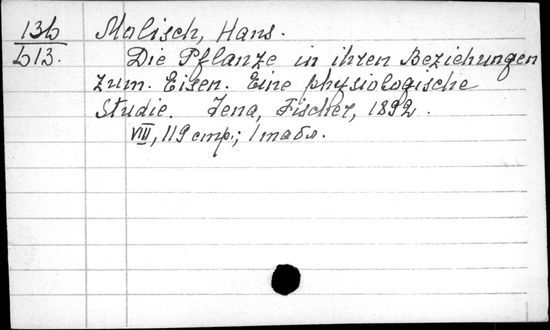 13b Molisch, Hans.
b13. Die Pflanze in ihren Beziehungen
zum. Eisen. Eine physiologische
Studie. Jena, Fischer, 1892.
VIII, 119 стр.; 1 табл.